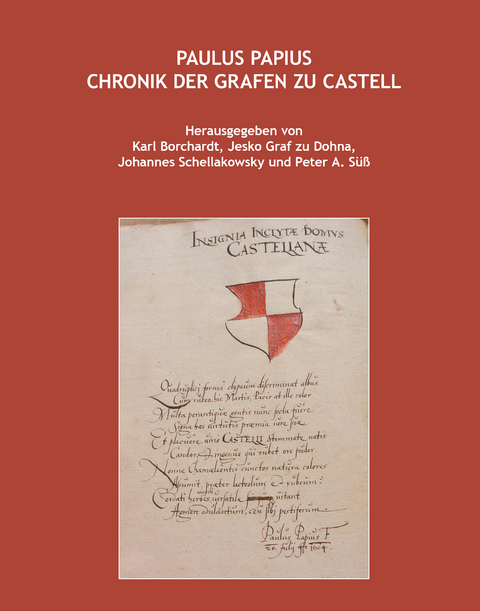 PAULUS PAPIUS
CHRONIK DER GRAFEN ZU CASTELL
Herausgegeben von
Karl Borchardt, Jesko Graf zu Dohna,
Johannes Schellakowsky und Peter A. Süß
INSIGNIA INCLYTÆ DOMVS
CASTELLANÆ
Quadruplici formâ clypeum discriminat albus
Cum rubeo, hic Martis, Pacis at ille color
Multa perantiquæ gentis nunc
Signa hæc virtutis præmia iure
Et placuere viris CASTELLI stemmate natis
Candor, et ingenuo qui rubet ore pudor.
Nonne Chamæleontis cunctos natura colores
Assumit, præter lacteolum et rubeum?
Cordati heroes versatile vitant
Agmen adulantum, ceu sibi pestiferum
Paulus Papius F
20. Julij